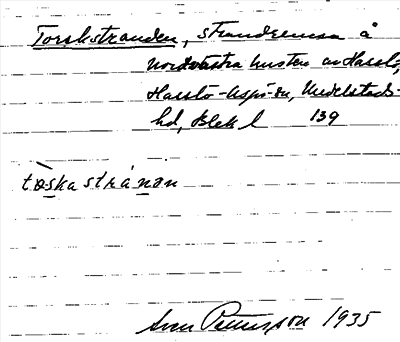 Torskstranden, strandremsa å
nordvästra kusten av Hasslö,
Hasslö-Aspö sn, Medelstads
hd, Blek l 139
tɵskastránən
Sven Pettersson 1935